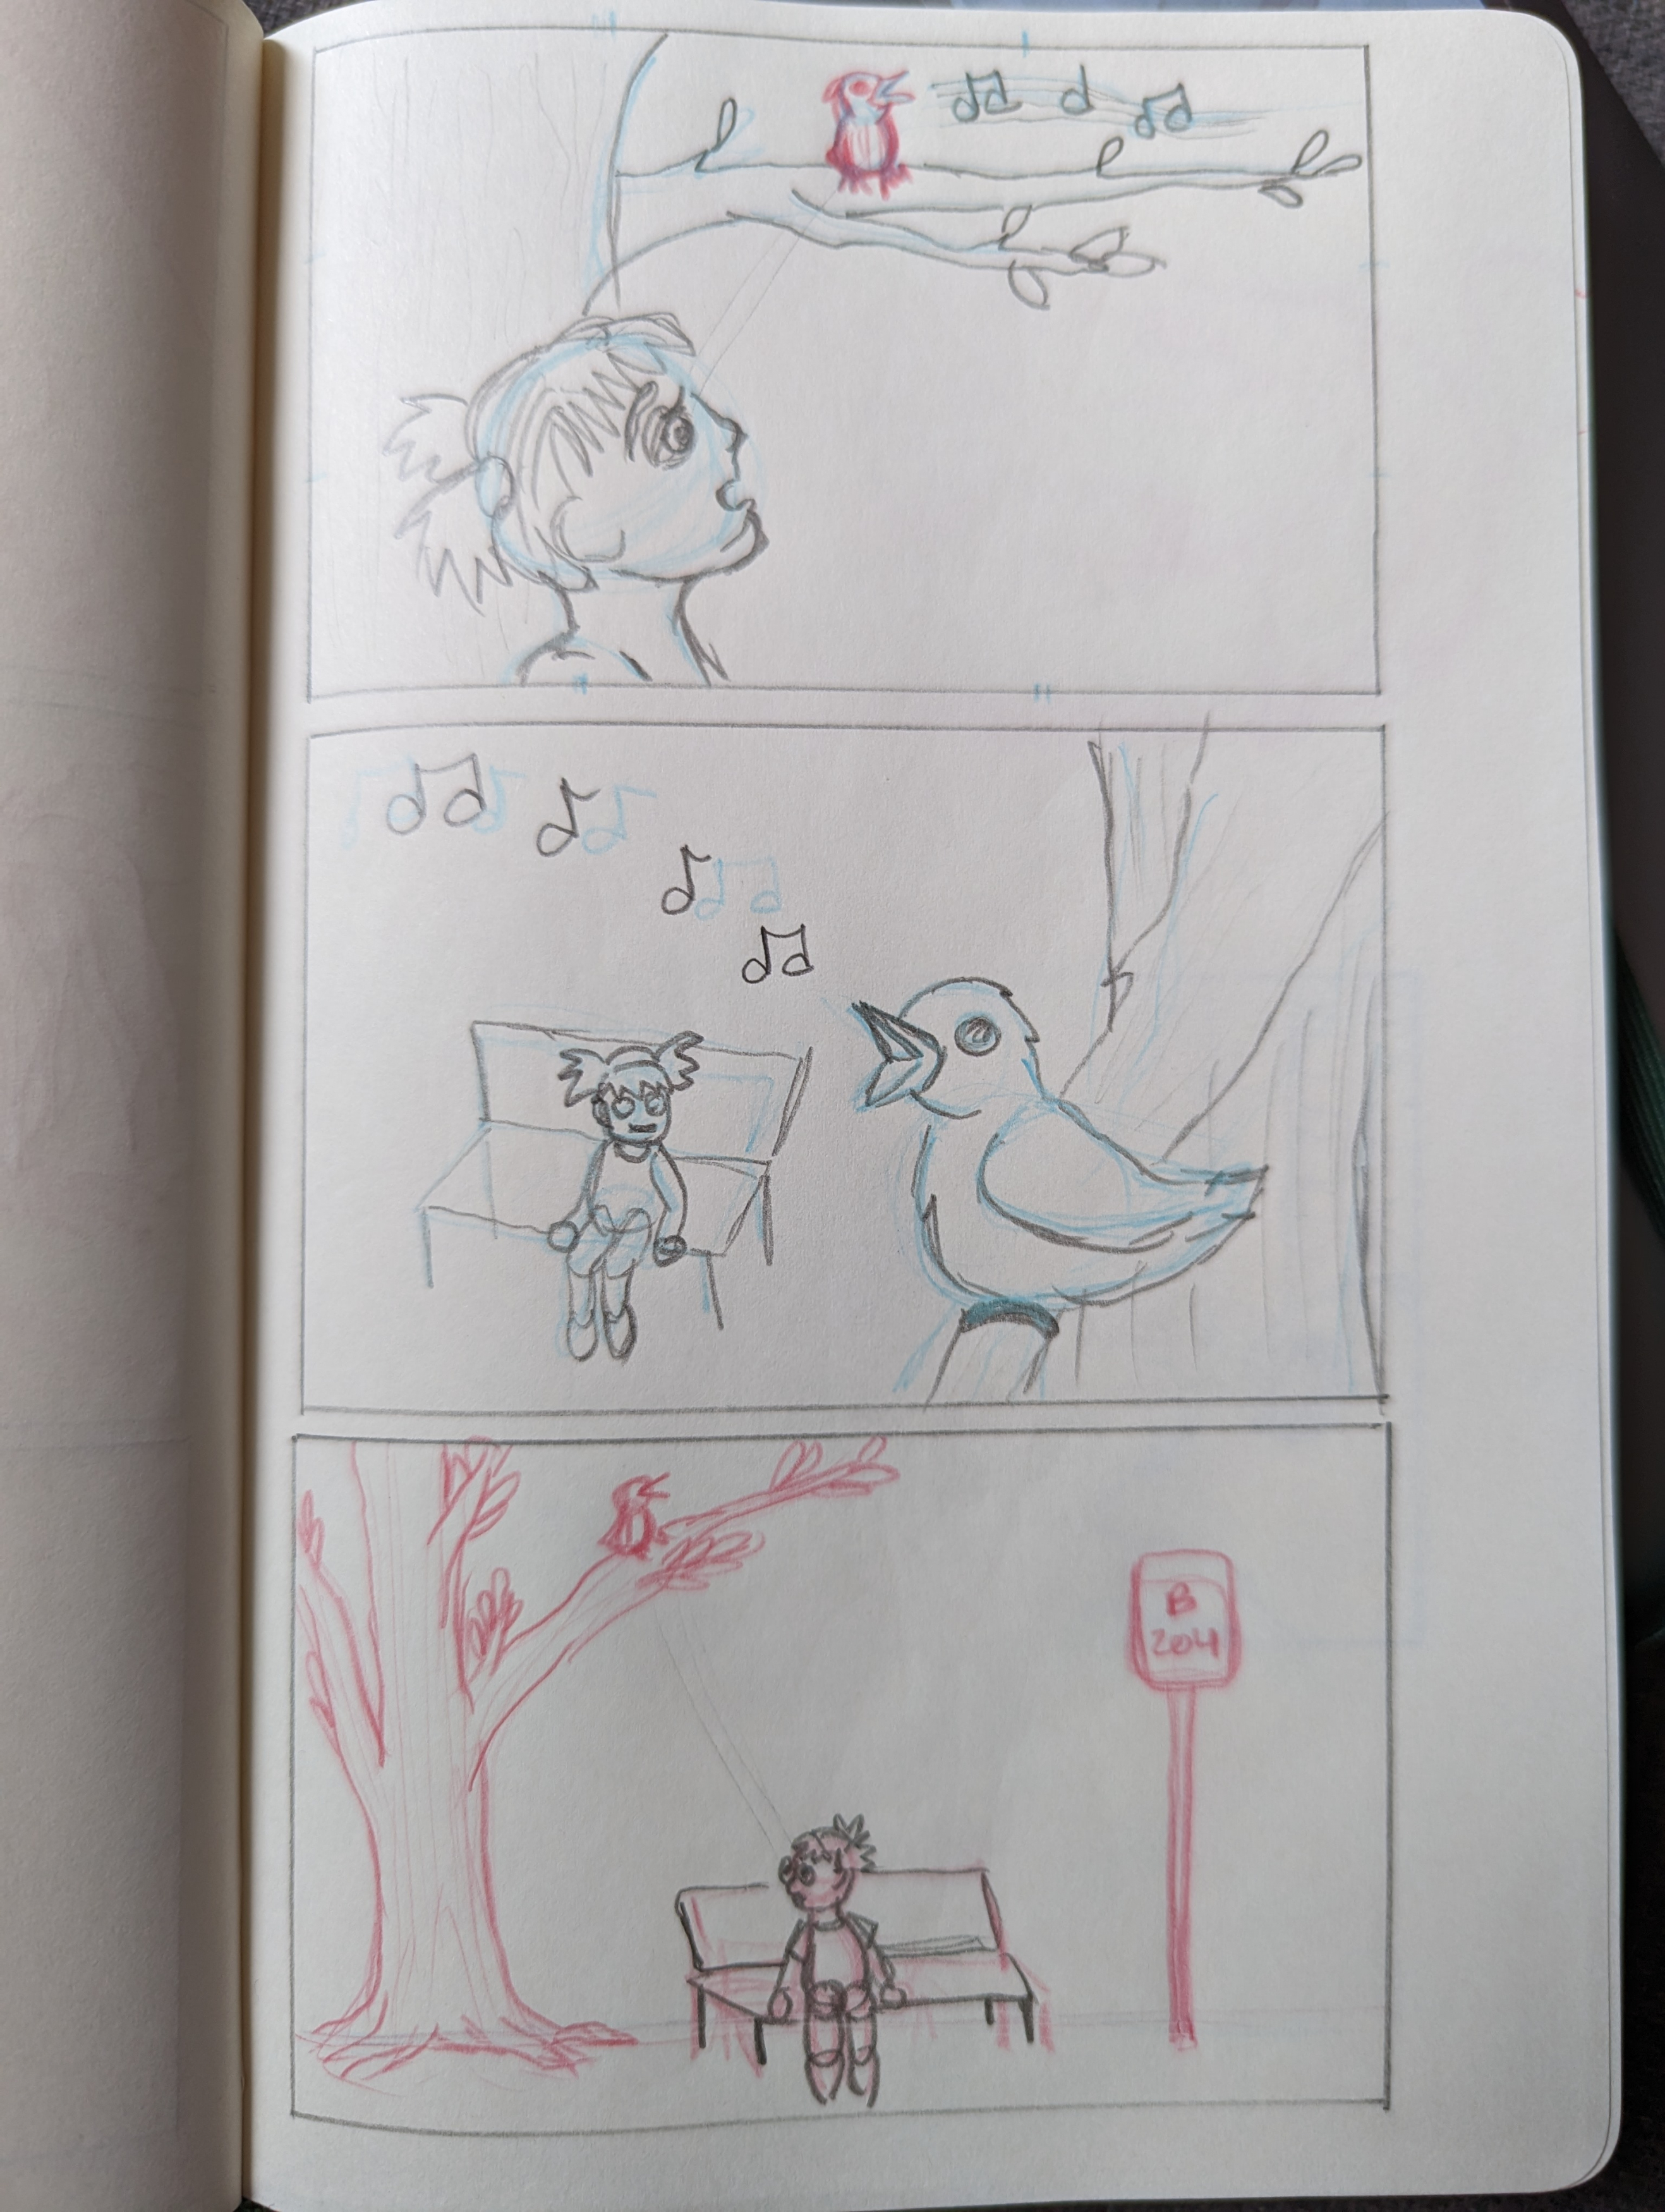 B
204